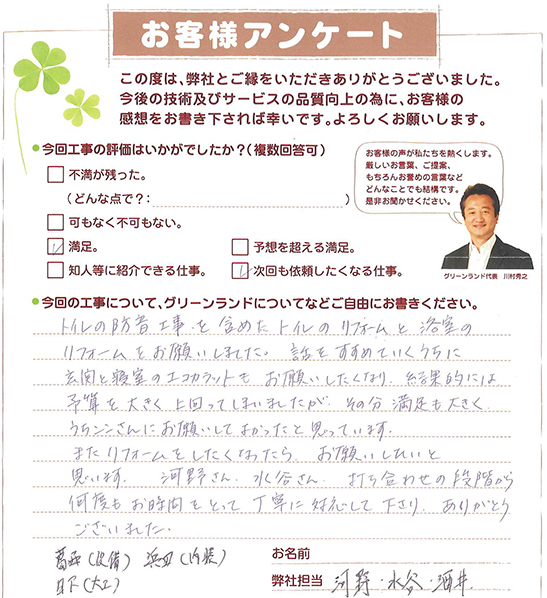 お客様アンケート
この度は、弊社とご縁をいただきありがとうございました。
今後の技術及びサービスの品質向上の為に、お客様の
感想をお書き下されば幸いです。よろしくお願いします。
●今回工事の評価はいかがでしたか？（複数回答可）
不満が残った。
（どんな点で？： ）
可もなく不可もない。
満足。 予想を超える満足。
知人等に紹介できる仕事。 次回も依頼したくなる仕事。
お客様の声が私たちを熱くします。
厳しいお言葉、ご提案、
もちろんお誉めの言葉など
どんなことでも結構です。
是非お聞かせください。
グリーンランド代表 川村秀之
●今回の工事について、グリーンランドについてなどご自由にお書きください。
トイレの防音工事を含めたトイレのリフォームと浴室の
リフォームをお願いしました。話をすすめていくうちに
玄関と寝室のエコカラットもお願いしたくなり、結果的には
予算を大きく上回ってしまいましたが、その分満足も大きく
さんにお願いしてよかったと思っています。
またリフォームをしたくなったら、お願いしたいと
思います。 河野さん、水谷さん、打ち合わせの段階から
何度もお時間をとって丁寧に対応して下さり、ありがとう
ございました。
葛西（設備） 浜田（内装）
日下（大工）
お名前
弊社担当 河野・水谷・酒井